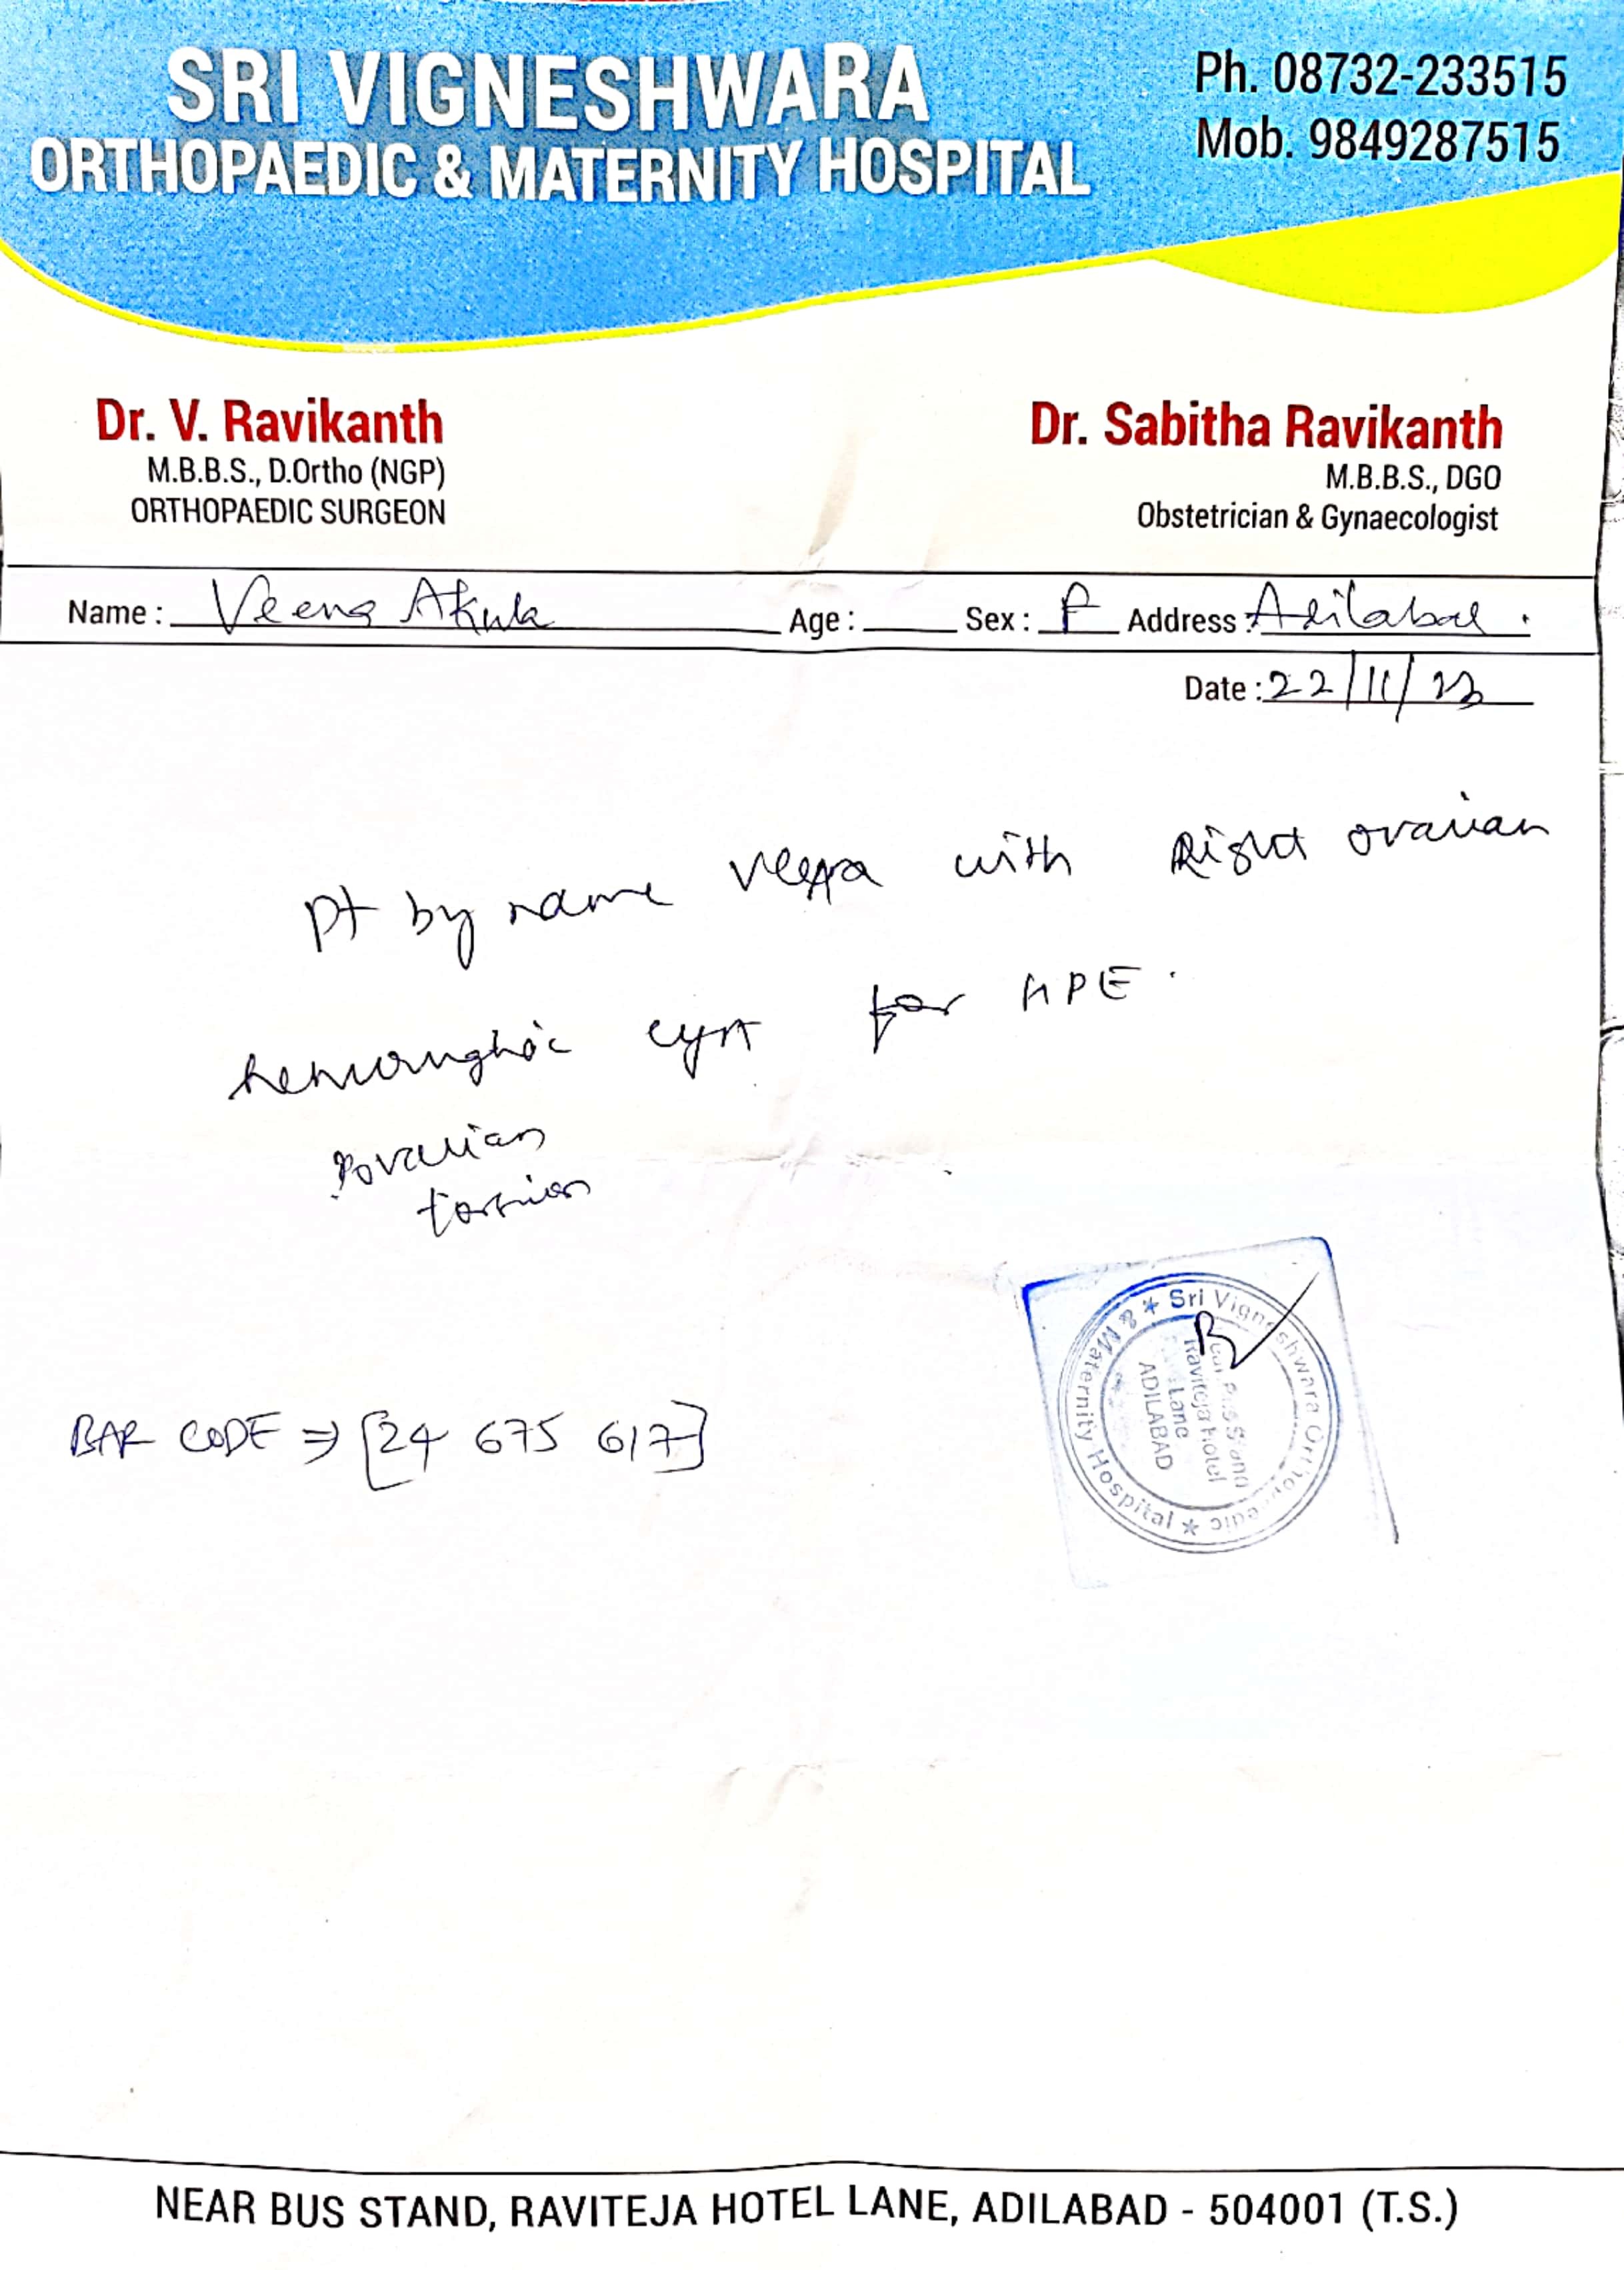 SRI VIGNESHWARA
ORTHOPAEDIC & MATERNITY HOSPITAL
Ph. 08732-233515
Mob. 9849287515
Dr. V. Ravikanth
M.B.B.S., D.Ortho (NGP)
ORTHOPAEDIC SURGEON
Dr. Sabitha Ravikanth
M.B.B.S., DGO
Obstetrician & Gynaecologist
Name : Veena Akula Age : Sex : F Address : Adilabad .
Date : 22/11/23
Pt by name Veena with Right ovarian
hemorrghoic cyst for HPE .
ovarian
torsion
BAR CODE ⇒ [24 675 617]
Sri Vigneshwara Orthopaedic & Maternity Hospital
Near Bus Stand
Raviteja Hotel
Lane
ADILABAD
NEAR BUS STAND, RAVITEJA HOTEL LANE, ADILABAD - 504001 (T.S.)